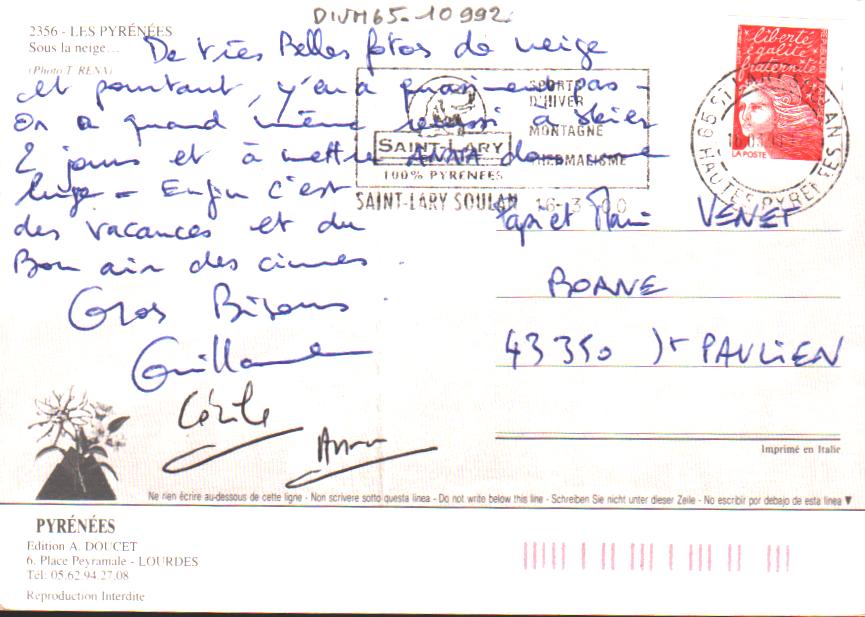 DIVM65-10992
2356 - LES PYRÉNÉES
Sous la neige...
(Photo T. RENA)
De très Belles fotos de neige
et pourtant, y'en a quasiment pas -
On a quand même réussi à skier
2 jours et à mettre ANNA dans une
luge - Enfin c'est
des vacances et du
Bon air des cimes.
Gros Bisous
Guillaume
Cécile
Anna
liberté
égalité
fraternité
LA POSTE
SPORTS
D'HIVER
MONTAGNE
THERMALISME
SAINT-LARY
100% PYRENEES
SAINT-LARY SOULAN 16-3-00
65 ST LARY SOULAN
HAUTES PYRENEES
Papi et Mami VENET
BOANE
43350 St PAULIEN
Imprimé en Italie
Ne rien écrire au-dessous de cette ligne - Non scrivere sotto questa linea - Do not write below this line - Schreiben Sie nicht unter dieser Zeile - No escribir por debajo de esta linea ▼
PYRÉNÉES
Edition A. DOUCET
6, Place Peyramale - LOURDES
Tél: 05.62.94.27.08
Reproduction Interdite